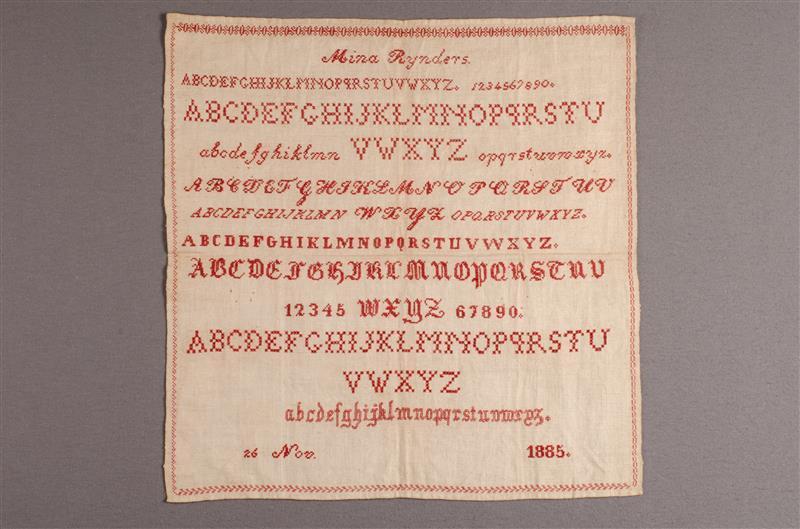 Mina Rynders.
ABCDEFGHIJKLMNOPQRSTUVWXYZ. 1234567890.
ABCDEFGHIJKLMNOPQRSTU
abcdefghiklmn VWXYZ opqrstuvwxyz.
ABCDEFGHIKLMNOPQRSTUV
ABCDEFGHIJKLMN WXYZ OPQRSTUVWXYZ.
ABCDEFGHIKLMNOPQRSTUVWXYZ.
ABCDEFGHIKLMNOPQRSTUV
12345 WXYZ 67890.
ABCDEFGHIJKLMNOPQRSTU
VWXYZ
abcdefghijklmnopqrstuvwxyz.
26 Nov. 1885.